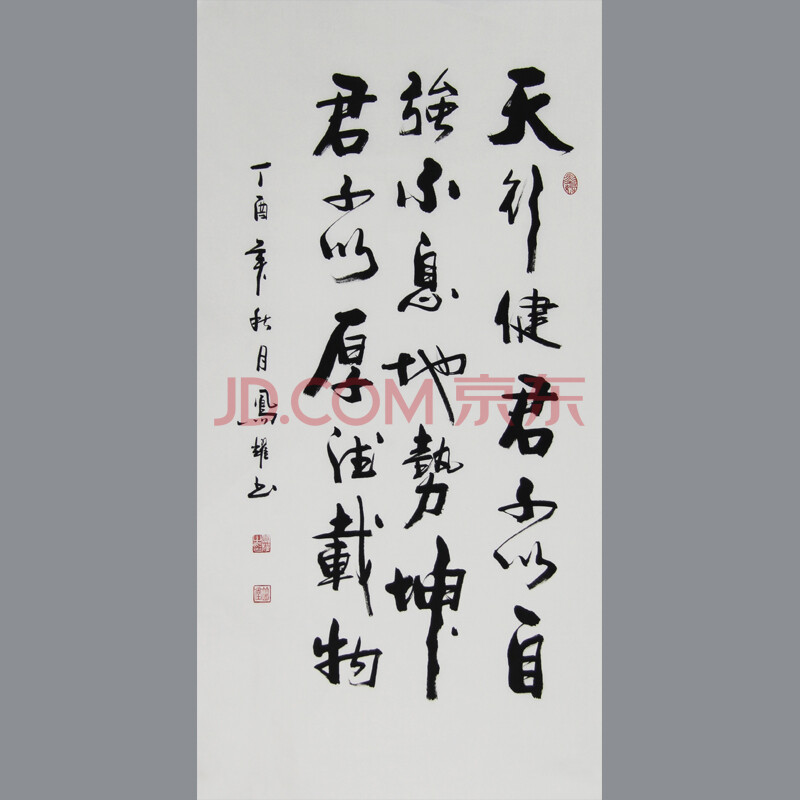 天行健君子以自
強不息地勢坤
君子以厚德載物
丁酉年秋月鳳耀书
JD.COM 京东